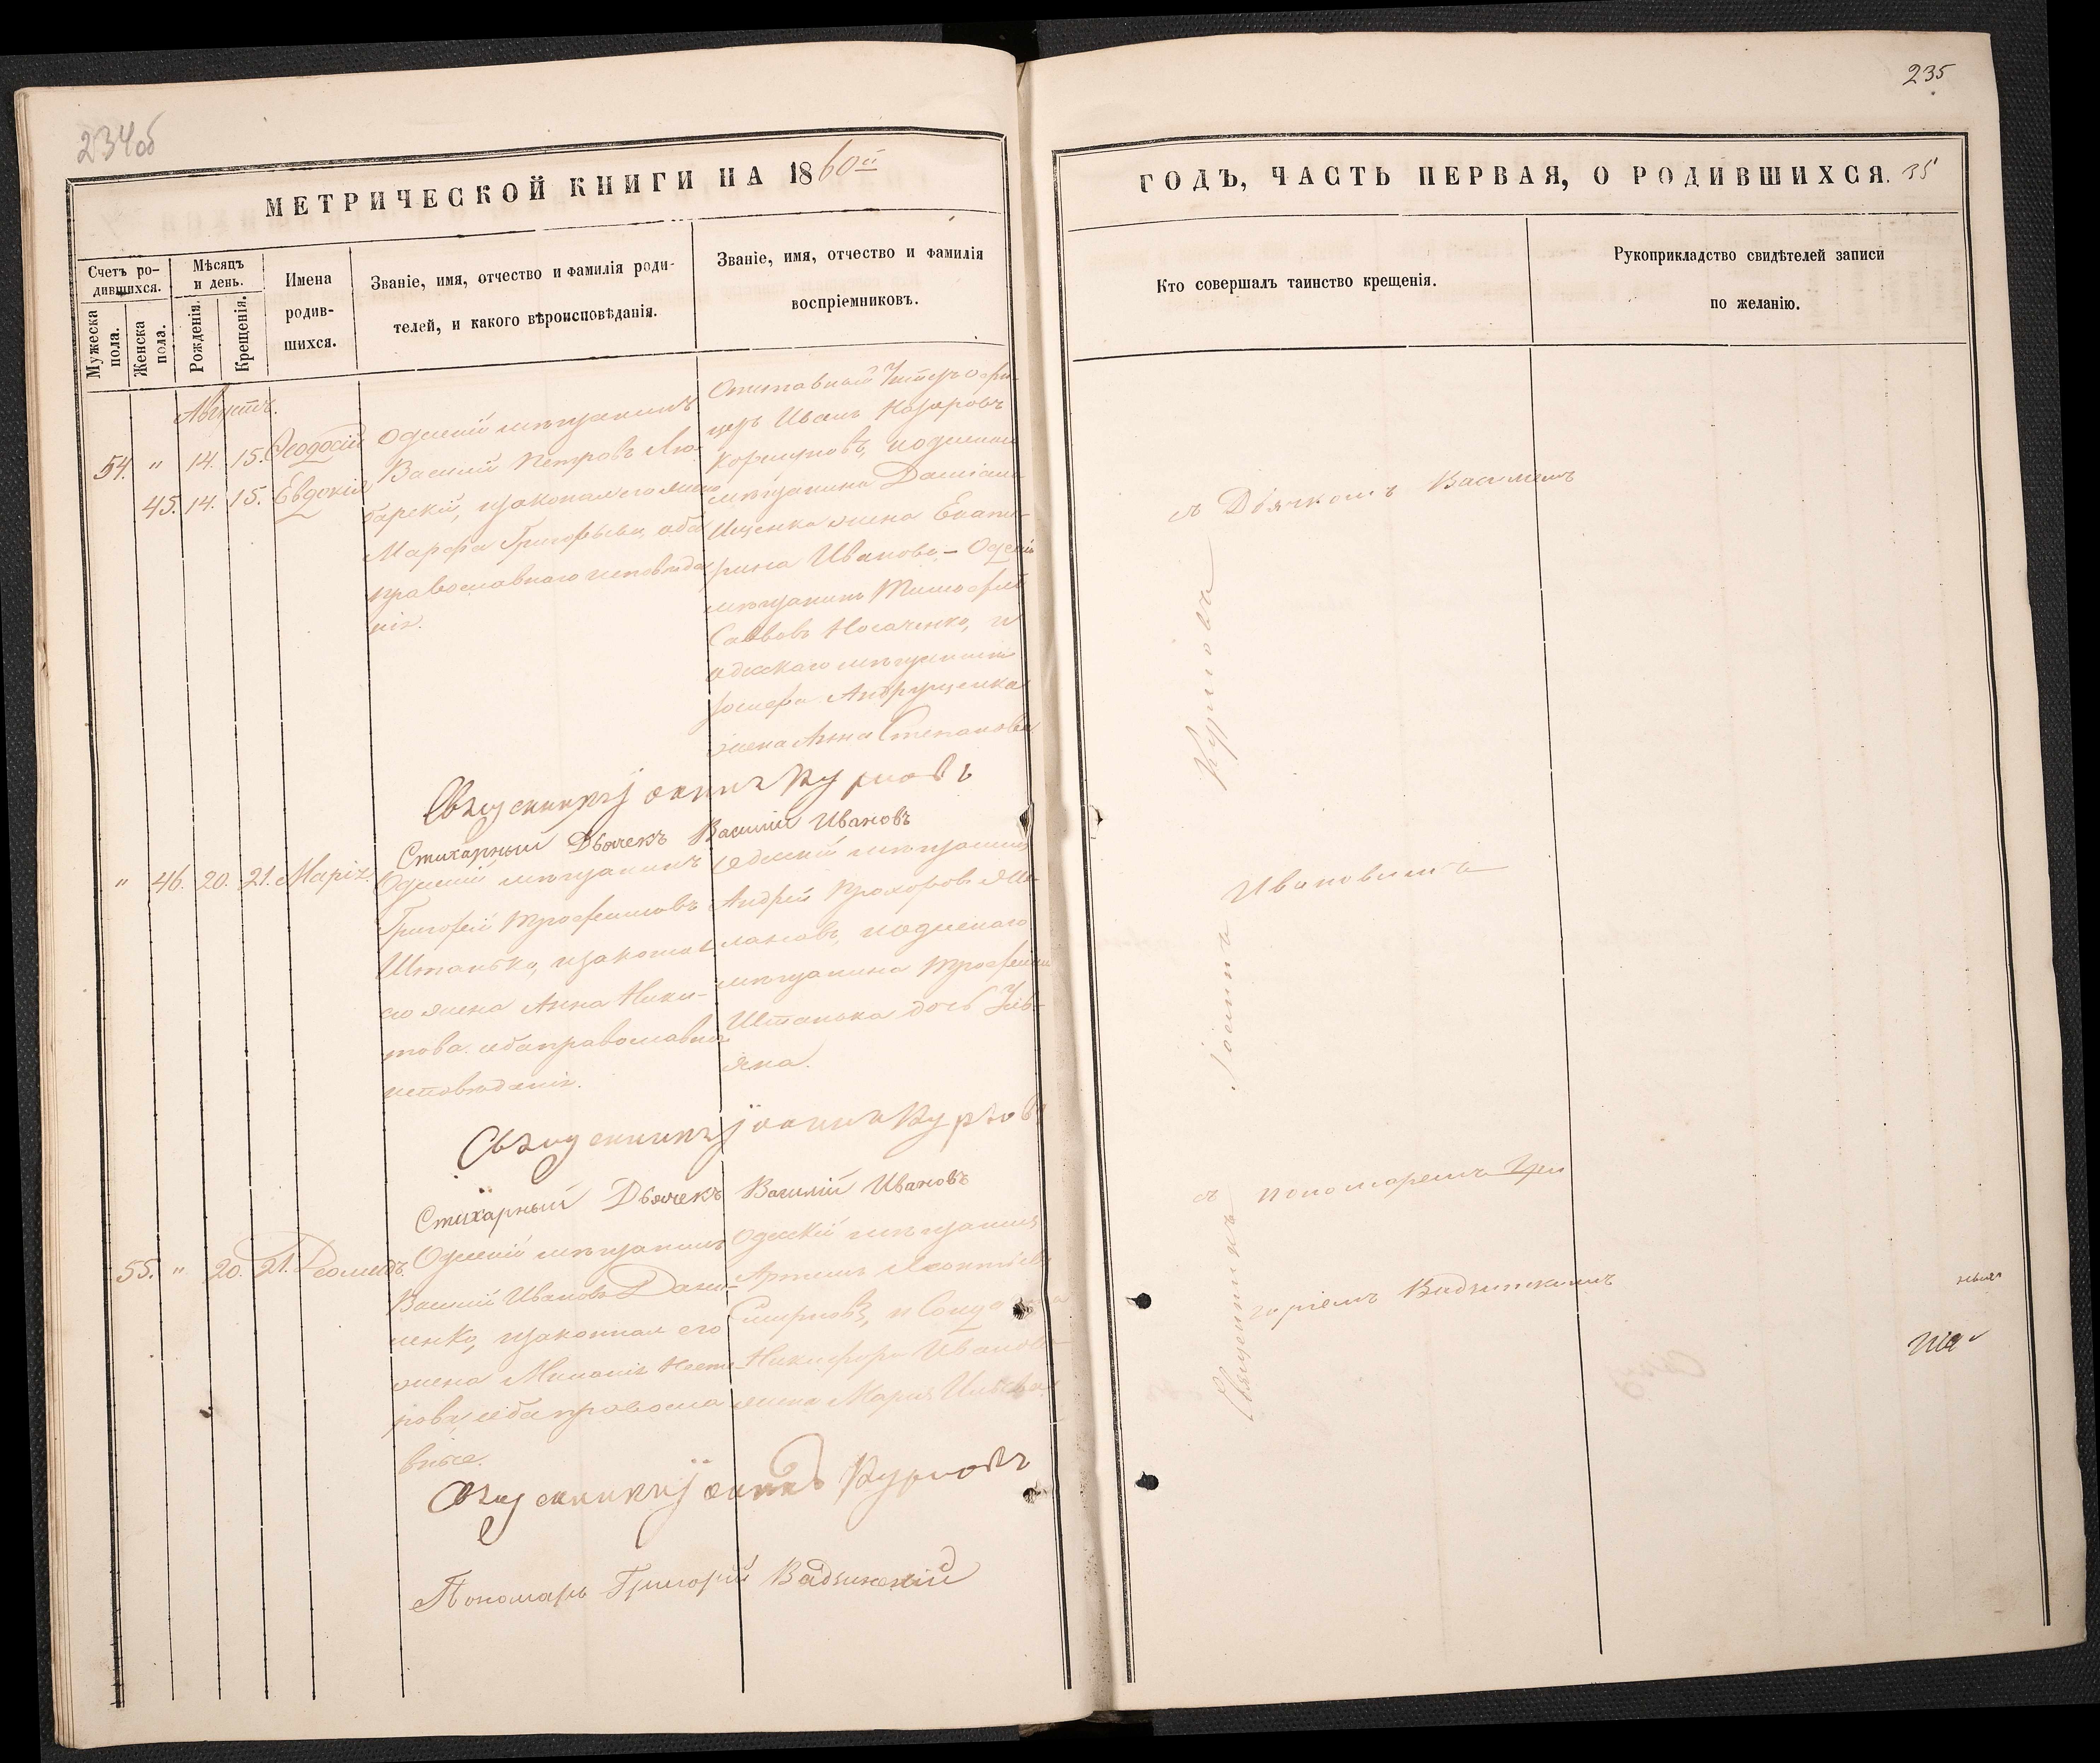 234об
МЕТРИЧЕСКОЙ КНИГИ НА 1860й
Счетъ ро-
дившихся.
Мужеска
пола.
Женска
пола.
Мѣсяцъ
и день.
Рожденія.
Крещенія.
Имена
родив-
шихся.
Званіе, имя, отчество и фамилія роди-
телей, и какого вѣроисповѣданія.
Званіе, имя, отчество и фамилія
воспріемниковъ.
Августъ.
54. " 14. 15. Ѳеодосій
45. 14. 15. Евдокія
Одесскій мѣщанинъ
Василій Петровъ Лю-
барскій, и законная его жена
Марфа Григорьева, оба
православнаго исповѣда
нія.
Отставной Унтеръ офи-
церъ Иванъ Назаровъ
Коршуновъ, и одесскаго
мѣщанина Даміана
Ищенка жена Екате-
рина Иванова - Одесскій
мѣщанинъ Тимофей
Саввовъ Носаченко, и
одесскаго мѣщанина
Іосифа Андрущенка
жена Анна Степанова
Священникъ Іоаннъ Курловъ
Стихарный Дьячекъ Василій Ивановъ
" 46. 20. 21. Марія.
Одесскій мѣщанинъ
Григорій Трофимовъ
Штанько, и законная
его жена Анна Ники-
това. оба православнаго
исповѣданія.
Одесскій мѣщанинъ
Андрей Прохоровъ
и одесскаго
мѣщанина Трофима
Штанька дочь Улі-
яна.
Священникъ Іоаннъ Курловъ
Стихарный Дьячекъ Василій Ивановъ
55. " 20. 21. Леонидъ.
Одесскій мѣщанинъ
Василій Ивановъ Дани-
ленко, и законная его
жена Меланія Несте-
рова, оба православ
вные.
Одесскій мѣщанинъ
Артемъ Леонтіевъ
Смирновъ, и Солдата
Никифора Иванова
жена Марія Ильева.
Священникъ Іоаннъ Курловъ
Пономарь Григорій Вадзинскій
235
ГОДЪ, ЧАСТЬ ПЕРВАЯ, О РОДИВШИХСЯ. 35
Кто совершалъ таинство крещенія.
Рукоприкладство свидѣтелей записи
по желанію.
Священникъ Іоаннъ Курловъ
съ Дьячкомъ Василіемъ
Ивановымъ
съ пономаремъ Гри
горіемъ Вадзинскимъ